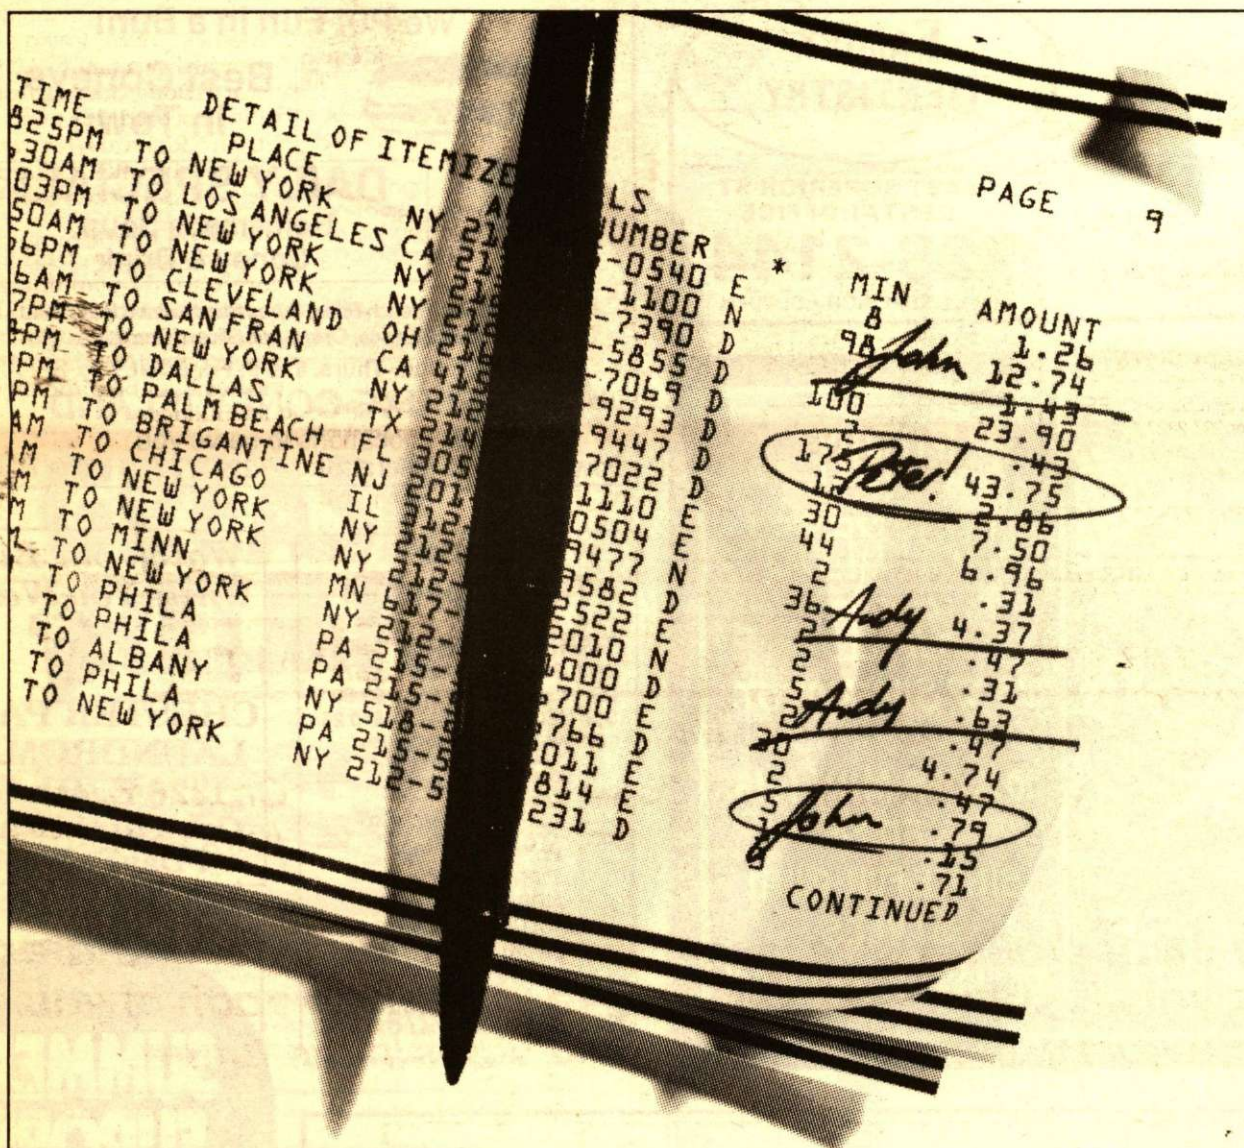 DETAIL OF ITEMIZE LS PAGE 9
TIME PLACE NUMBER * MIN AMOUNT
825PM TO NEW YORK NY -0540 E 8 1.26
30AM TO LOS ANGELES CA -1100 N 98 John 12.74
03PM TO NEW YORK NY -7390 D 1.43
50AM TO NEW YORK NY -5855 D 100 23.90
56PM TO CLEVELAND OH -7069 D 2 .43
6AM TO SAN FRAN CA 415 -9293 D 175 Peter! 43.75
7PM TO NEW YORK NY -9447 D 12 2.86
PM TO DALLAS TX 214 7022 D 30 7.50
PM TO PALM BEACH FL 305 1110 E 44 6.96
PM TO BRIGANTINE NJ 201 0504 E 2 .31
AM TO CHICAGO IL 312 9477 N 36 Andy 4.37
M TO NEW YORK NY 212 9582 D 2 .47
M TO NEW YORK NY 212- 2522 E 2 .31
M TO MINN MN 612- 2010 N 5 Andy .63
TO NEW YORK NY 212- 1000 D 2 .47
TO PHILA PA 215- 700 E 30 4.74
TO PHILA PA 215- 766 D 2 .47
TO ALBANY NY 518- 2011 E 5 John .79
TO PHILA PA 215-5 814 E 1 .15
TO NEW YORK NY 212-5 231 D .71
CONTINUED